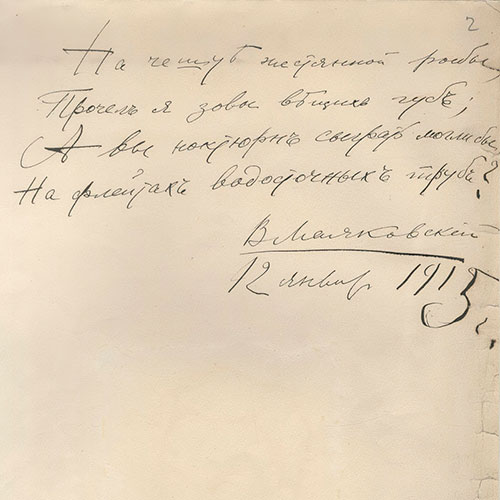 2
На чешуѣ жестяной рыбы
Прочелъ я зовы вѣщихъ губъ;
А вы ноктюрнъ сыграть могли бы
На флейтахъ водосточныхъ трубъ?
ВМаяковскій
12 январ 1915 г.